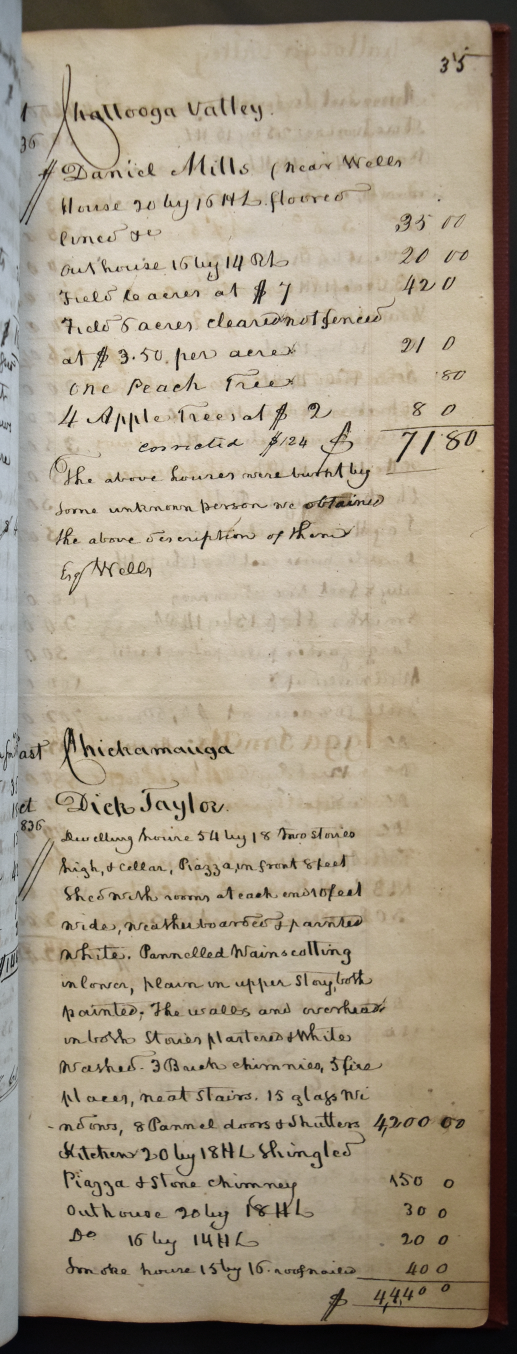 35
Challooga Valley.
36
Daniel Mills (near Wells
House 20 by 16 HL. floored
lined &c 35 00
outhouse 16 by 14 RL 20 00
Field 6 acres at $ 7 42 0
Field 6 acres cleared not fenced
at $ 3.50. per acre 21 0
one Peach Tree 80
4 Apple Trees at $ 2 8 0
corrected $124 $ 71 80
The above houses were burnt by
some unknown person we obtained
the above description of them
Esq Wells
East Chickamauga
Oct Dick Taylor.
1836
Dwelling house 54 by 18 two stories
high, & cellar, Piazza, in front 8 feet
Shed with rooms at each end 10 feet
wide, weatherboarded & painted
white. Pannelled Wainscotting
in lower, plain in upper Story, both
painted. The walls and overhead
in both Stories plastered & White
Washed. 3 Brick chimnies, 5 fire
places, neat Stairs. 15 glass Wi
-ndows, 8 Pannel doors & Shutters 4,200 00
Kitchen 20 by 18 HL Shingled
Piazza & Stone chimney 150 0
Outhouse 20 by 18 HL 30 0
Do 16 by 14 HL 20 0
Smoke house 15 by 16. roof nailed 40 0
$ 4,440 0